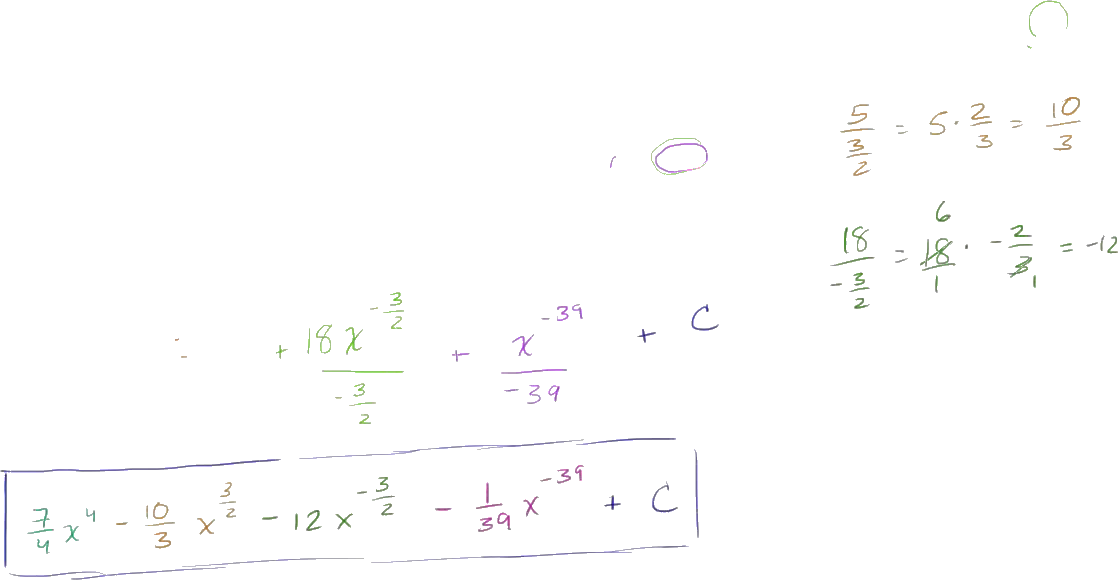 5/(3/2) = 5 · 2/3 = 10/3
18/(-3/2) = 18/1 · -2/3 = -12
6
1
= + 18x^(-3/2)/(-3/2) + x^(-39)/(-39) + C
7/4 x^4 - 10/3 x^(3/2) - 12x^(-3/2) - 1/39 x^(-39) + C